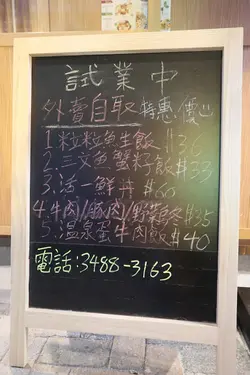 試業中
外賣自取 特惠價
1.粒粒魚生飯 $36
2.三文魚蟹籽飯 $33
3.活一鮮丼 $60
4.牛肉/豚肉/野菜冬 $35
5.溫泉蛋牛肉飯 $40
電話:3488-3163